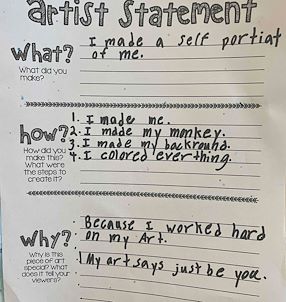 artist Statement
What?
What did you
make?
I made a self portiat
of me.
how?
How did you
make this?
What were
the steps to
create it?
1. I made me.
2. I made my monkey.
3. I made my backround.
4. I colored everthing.
Why?
Why is this
piece of art
special? What
does it tell your
viewers?
Because I worked hard
on my Art.
My art says just be you.